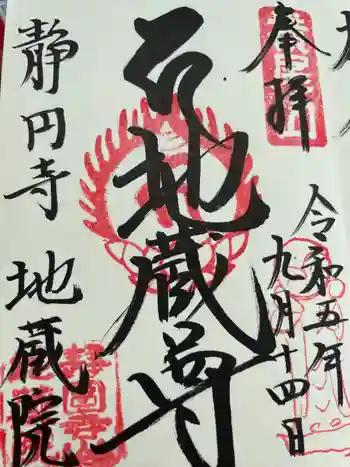 奉拝
令和五年
九月十四日
地蔵尊
静円寺
地蔵院